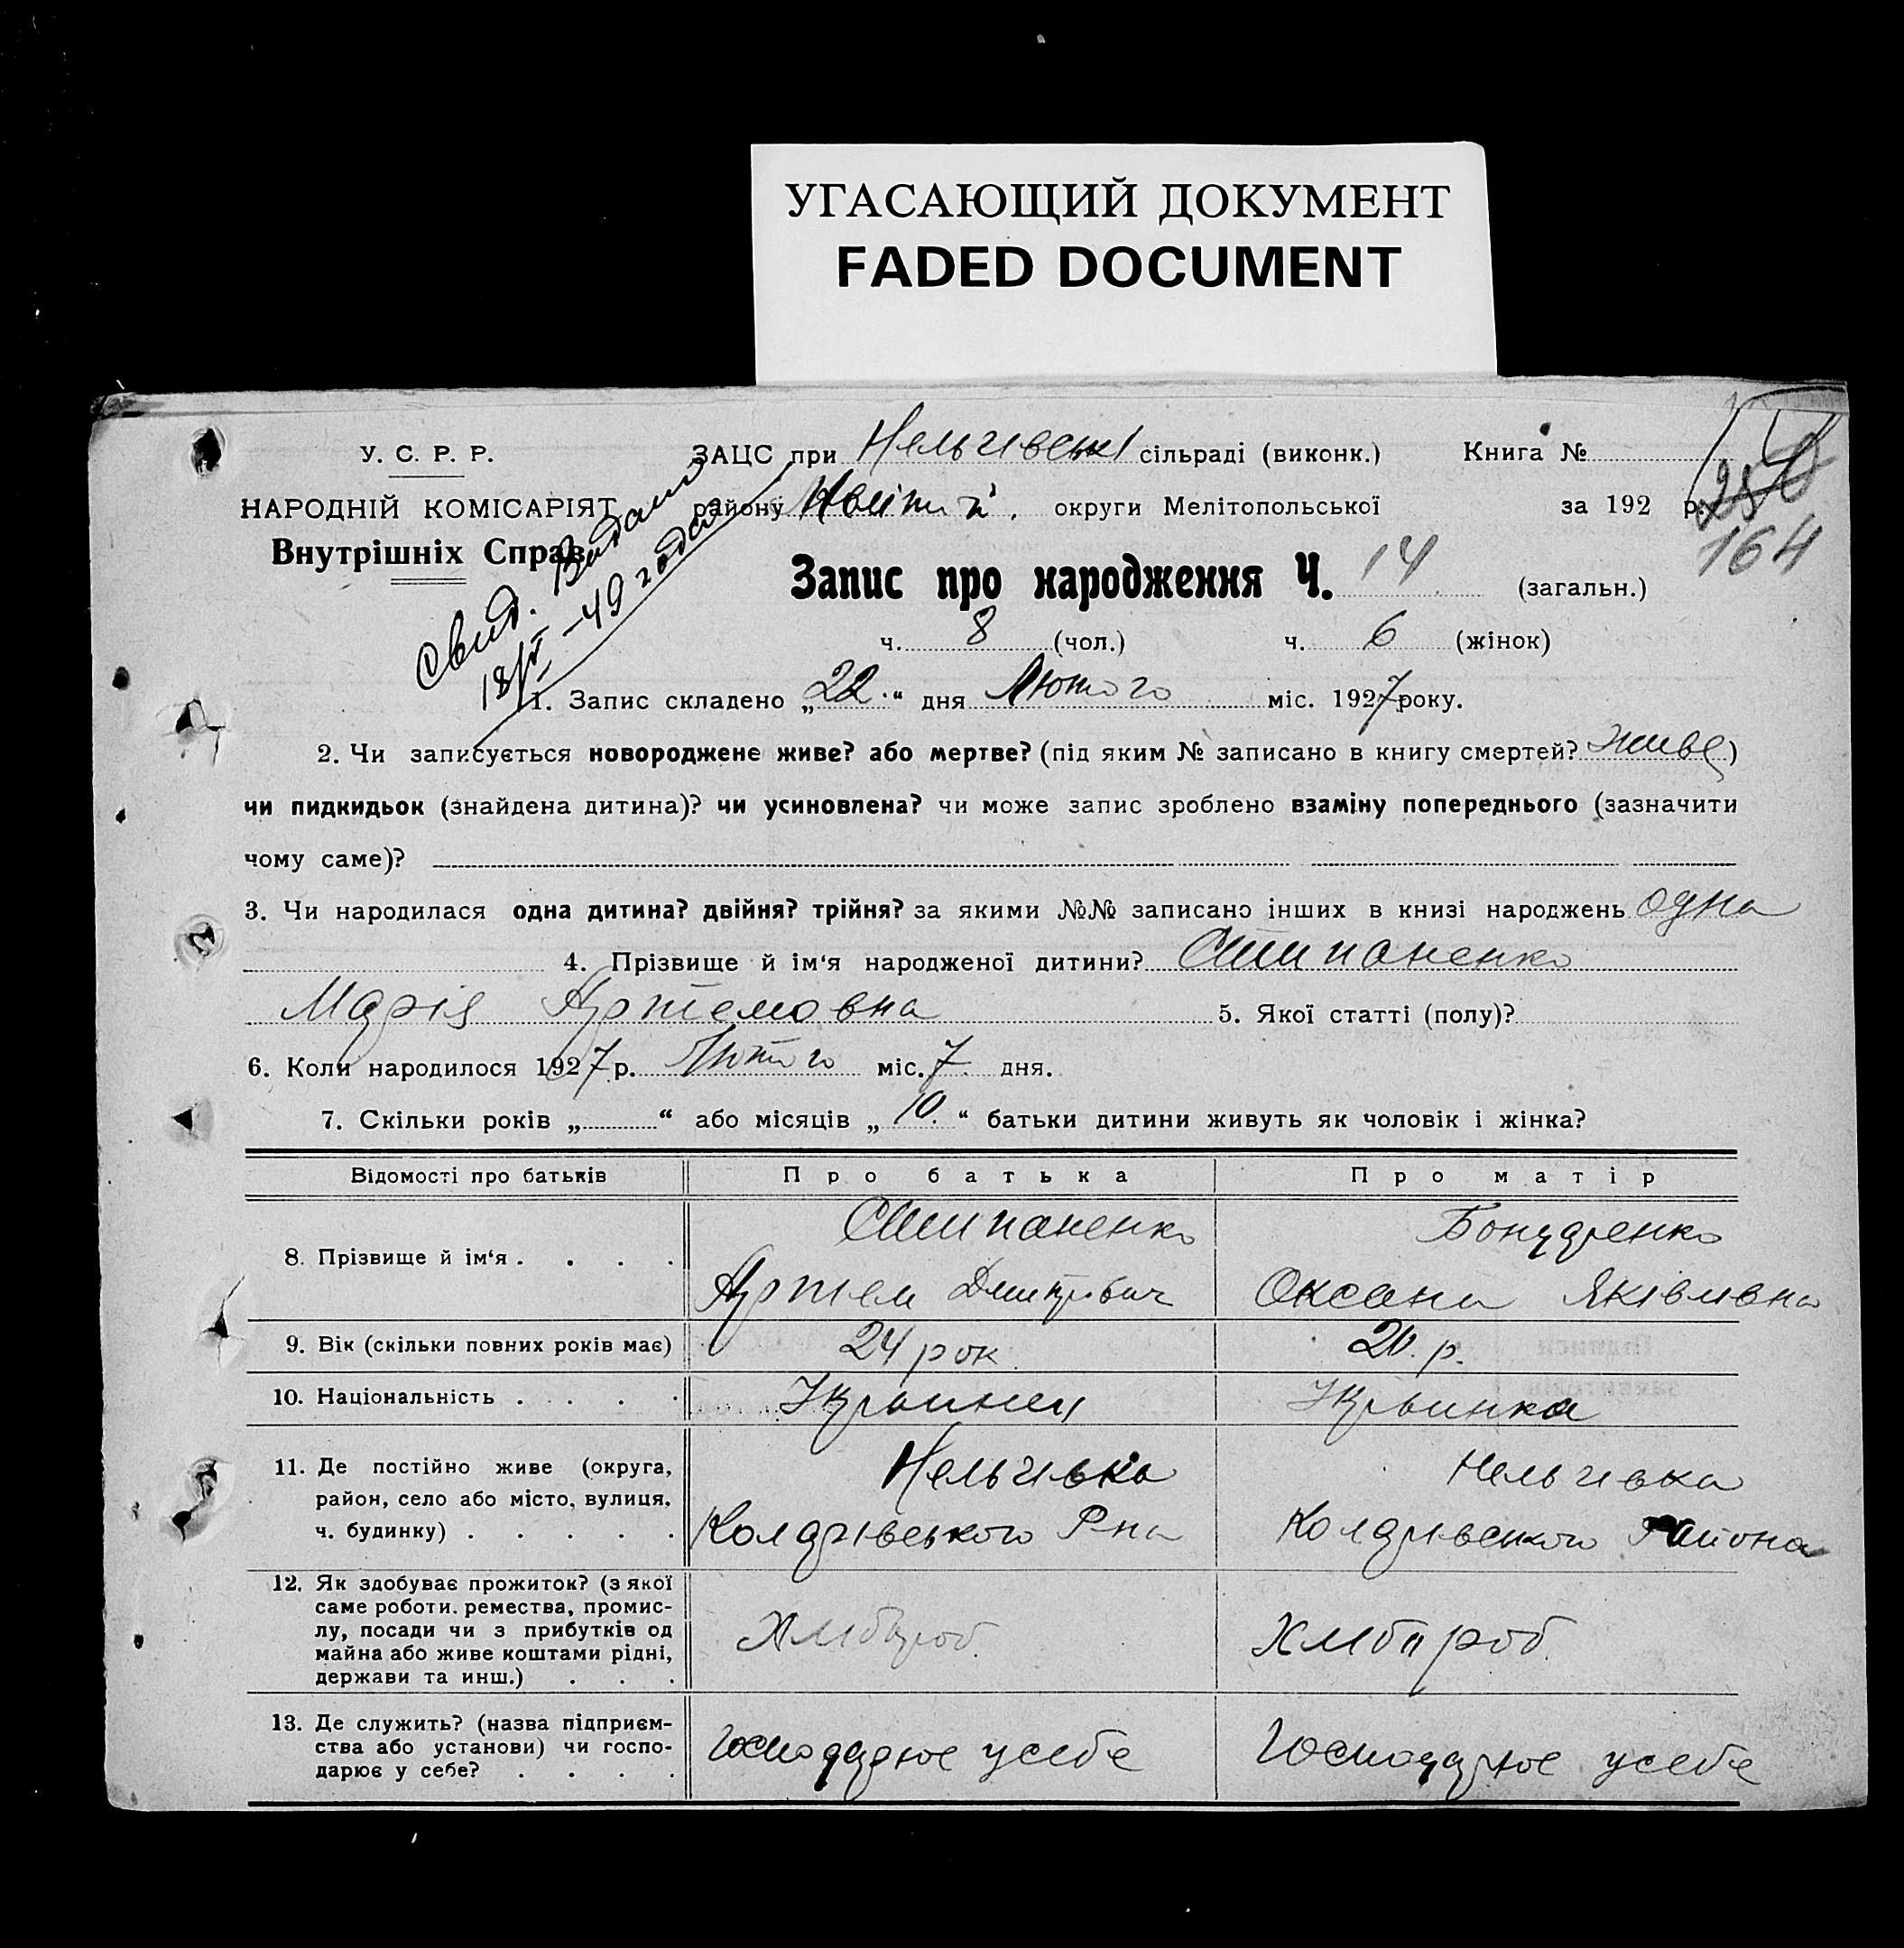 УГАСАЮЩИЙ ДОКУМЕНТ
FADED DOCUMENT
У. С. Р. Р.
НАРОДНІЙ КОМІСАРІЯТ
Внутрішніх Справ
ЗАЦС при Нельгівські сільраді (виконк.)
Книга №
району округи Мелітопольської
за 192 р.
250
164
Свид. Видано
18/V-49 года
Запис про народження Ч. 14 (загальн.)
ч. 8 (чол.) ч. 6 (жінок)
1. Запис складено „22“ дня Лютого міс. 1927 року.
2. Чи записується новороджене живе? або мертве? (під яким № записано в книгу смертей? живе)
чи пидкидьок (знайдена дитина)? чи усиновлена? чи може запис зроблено взаміну попереднього (зазначити
чому саме)?
3. Чи народилася одна дитина? двійня? трійня? за якими №№ записано інших в книзі народжень одна
4. Прізвище й ім‘я народженої дитини? Стипаненко
Марія Артемовна 5. Якої статті (полу)?
6. Коли народилося 1927 р. Лютого міс. 7 дня.
7. Скільки років „ “ або місяців „10.“ батьки дитини живуть як чоловік і жінка?
Відомості про батьків Про батька Про матір
8. Прізвище й ім‘я . . . .
Стипаненко
Артем Дмитрович
Бондаренко
Оксана Яківлівна
9. Вік (скільки повних років має) 24 рок 20. р.
10. Національність . . . . Украинец Украинка
11. Де постійно живе (округа,
район, село або місто, вулиця,
ч. будинку) . . . . .
Нельгивка
Коларівського Р-на
Нельгивка
Коларівського Района
12. Як здобуває прожиток? (з якої
саме роботи. ремества, промис-
лу, посади чи з прибутків од
майна або живе коштами рідні,
держави та инш.) . . .
Хлибороб.
Хлибороб.
13. Де служить? (назва підприєм-
ства або установи) чи госпо-
дарює у себе? . . . .
Господарює у себе
Господарює у себе